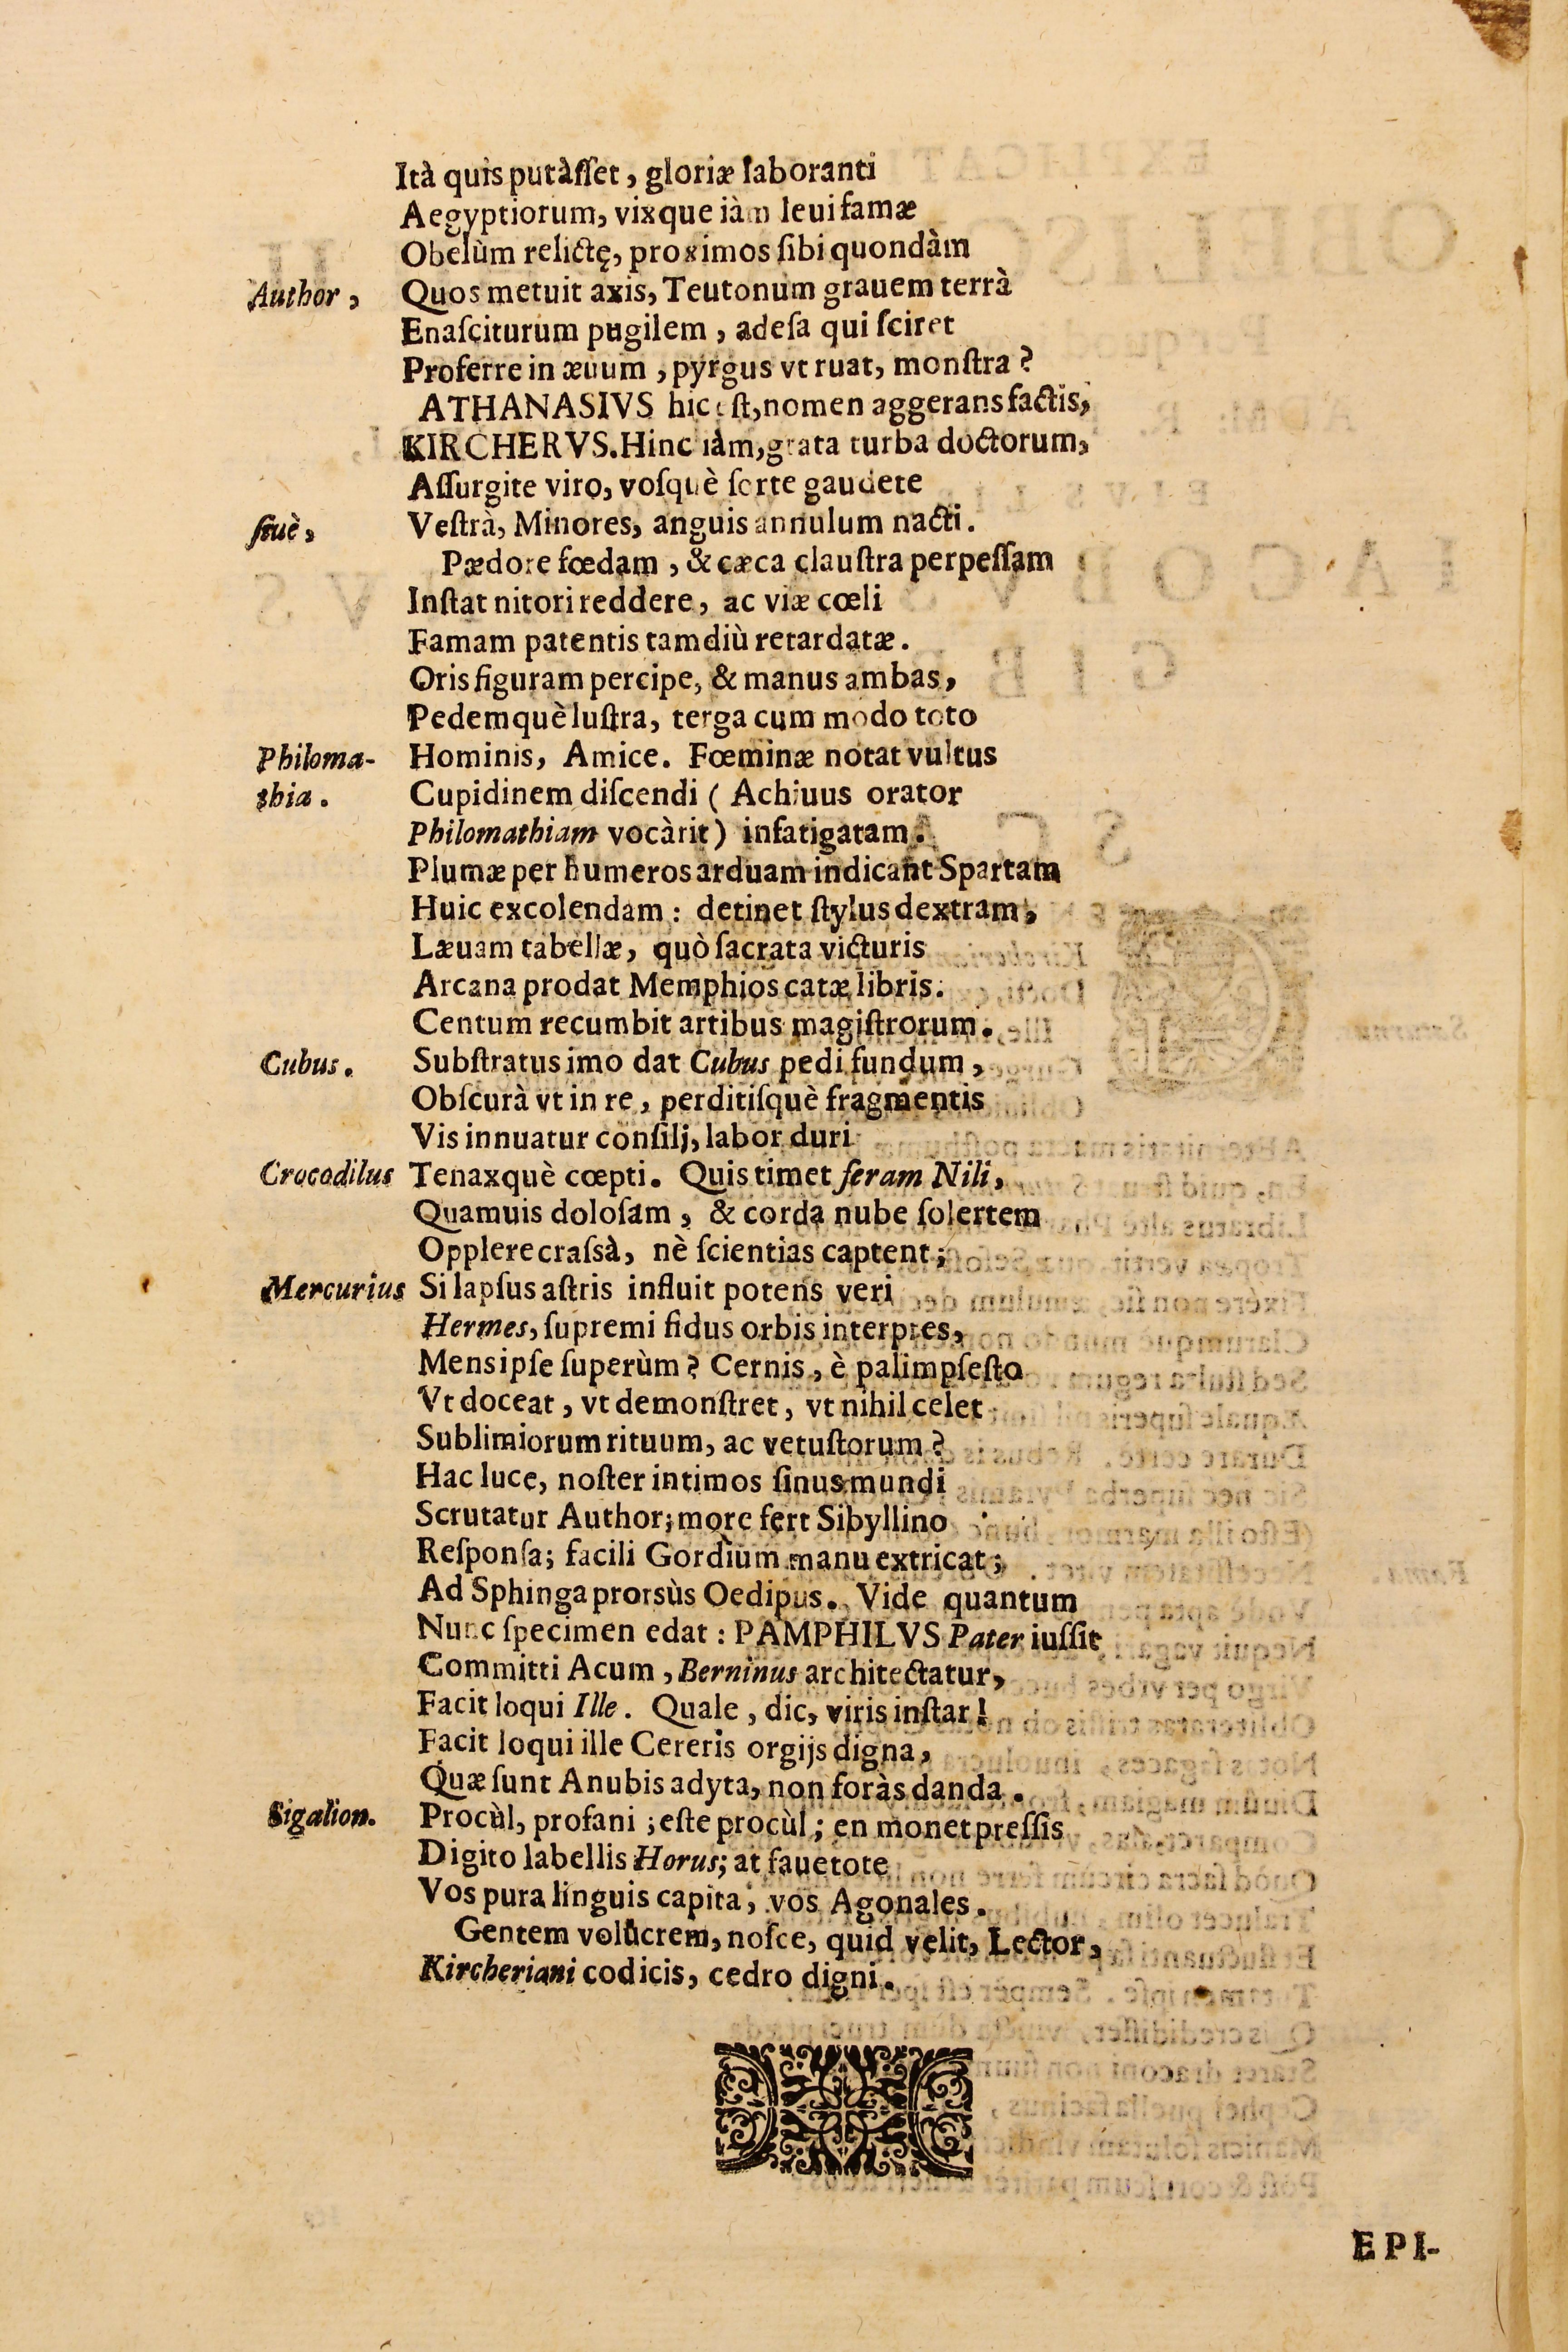 Ità quis putàſſet, gloriæ laboranti
Aegyptiorum, vixque iàm leui famæ
Obelùm relictę, proximos ſibi quondàm
Author, Quos metuit axis, Teutonum grauem terrà
Enaſciturum pugilem, adeſa qui ſciret
Proferre in æuum, pyrgus vt ruat, monſtra?
ATHANASIVS hic eſt, nomen aggerans factis,
KIRCHERVS. Hinc iàm, grata turba doctorum,
Aſſurgite viro, voſquè ſorte gaudete
ſiuè, Veſtrà, Minores, anguis annulum nacti.
Pædore fœdam, & cæca clauſtra perpeſſam
Inſtat nitori reddere, ac viæ cœli
Famam patentis tamdiù retardatæ.
Oris figuram percipe, & manus ambas,
Pedemquè luſtra, terga cum modo toto
Philoma- Hominis, Amice. Fœminæ notat vultus
thia. Cupidinem diſcendi (Achiuus orator
Philomathiam vocàrit) infatigatam.
Plumæ per humeros arduam indicant Spartam
Huic excolendam: detinet ſtylus dextram,
Læuam tabellæ, quò ſacrata victuris
Arcana prodat Memphios catæ libris.
Centum recumbit artibus magiſtrorum.
Cubus. Subſtratus imo dat Cubus pedi fundum,
Obſcurà vt in re, perditiſquè fragmentis
Vis innuatur conſilj, labor duri
Crocodilus Tenaxquè cœpti. Quis timet feram Nili,
Quamuis doloſam, & corda nube ſolertem
Opplere craſsà, nè ſcientias captent;
Mercurius Si lapſus aſtris influit potens veri
Hermes, ſupremi fidus orbis interpres,
Mens ipſe ſuperùm? Cernis, è palimpſeſto
Vt doceat, vt demonſtret, vt nihil celet
Sublimiorum rituum, ac vetuſtorum?
Hac luce, noſter intimos ſinus mundi
Scrutatur Author; more fert Sibyllino
Reſponſa; facili Gordìum manu extricat;
Ad Sphinga prorsùs Oedipus. Vide quantum
Nunc ſpecimen edat: PAMPHILVS Pater iuſſit
Committi Acum, Berninus architectatur,
Facit loqui Ille. Quale, dic, viris inſtar!
Facit loqui ille Cereris orgijs digna,
Quæ ſunt Anubis adyta, non foràs danda.
Sigalion. Procùl, profani; eſte procùl; en monet preſſis
Digito labellis Horus; at fauetote
Vos pura linguis capita, vos Agonales.
Gentem volucrem, noſce, quid velit, Lector,
Kircheriani codicis, cedro digni.
EPI-